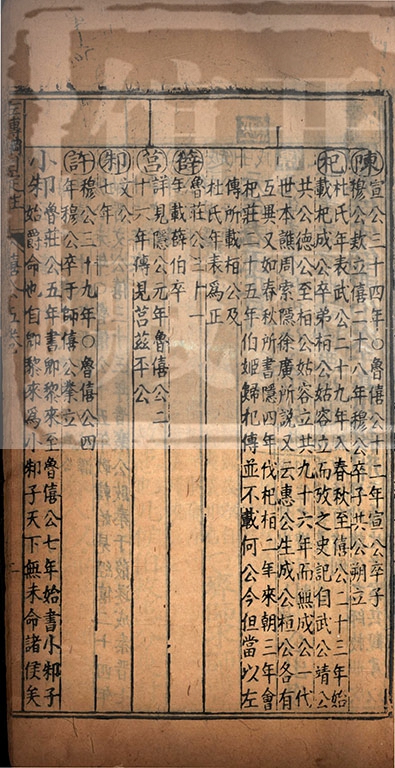 陳宣公三十四年〇魯僖公十二年宣公卒子
穆公款立僖二十八年穆公卒子共公朔立
杞杜氏年表武公二十九年入春秋至僖公二十三年始
載杞成公卒弟桓公姑容立而攷之史記自武公靖公
共公德公至桓公姑容立共九十六年而無成公一代
世本譙周索隱徐廣所說又云惠公生成公桓公各有
互異又如春秋所書隱四年伐杞桓二年來朝三年會
杞莊二十五年伯姬歸杞傳並不載何公今但當以左
傳所載桓公及
杜氏年表為正
薛魯莊公三十一
年載薛伯卒
莒詳見隱公元年魯僖公二
十六年傳見莒茲平公
邾文公
七年
許穆公三十九年〇魯僖公四
年穆公卒于師僖公業立
小邾魯莊公五年書郳犂來至魯僖公七年始書小邾子
始爵命也自郳黎來為小邾子天下無未命諸侯矣
僖公五卷